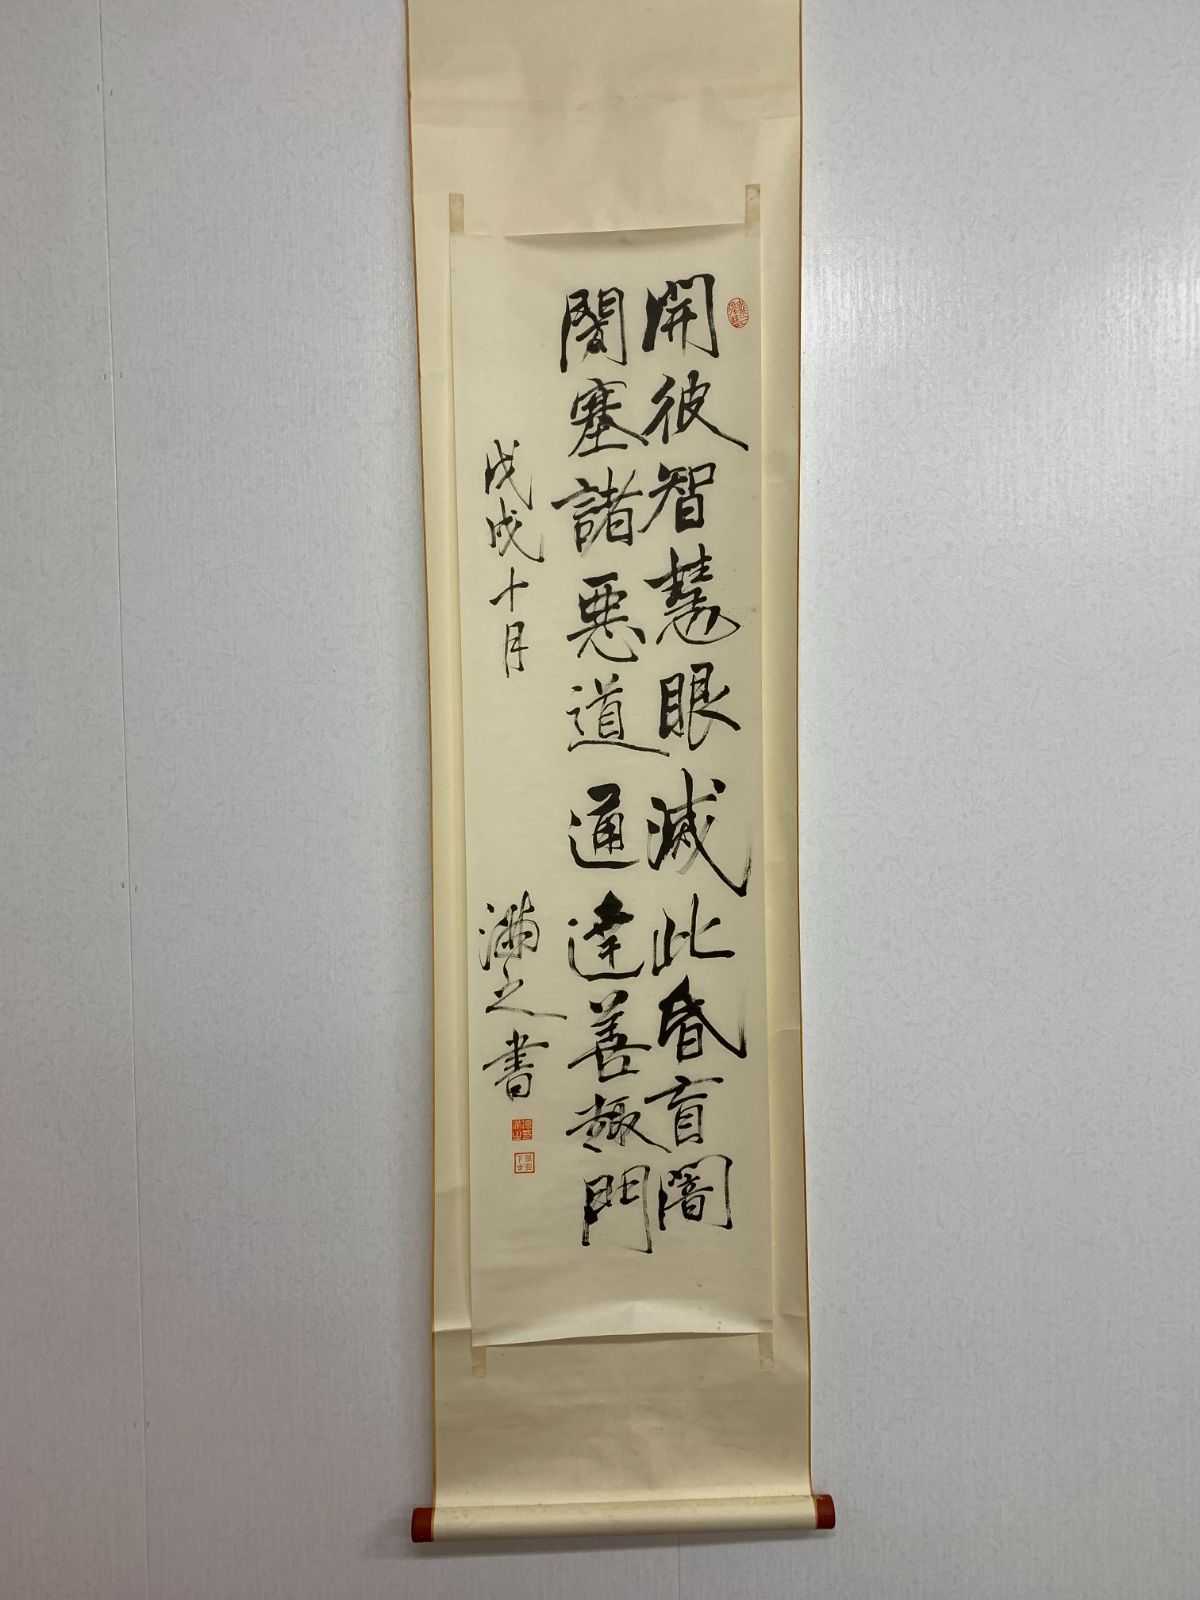 開彼智慧眼滅此昏盲闇
閉塞諸悪道通達善趣門
戊戌十月
滿之書